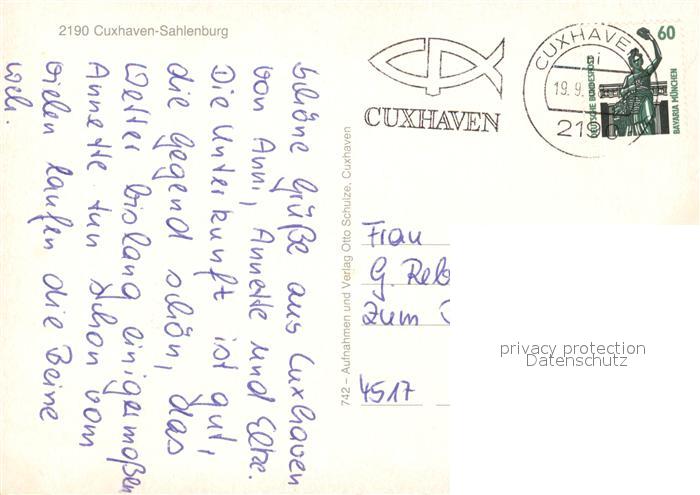 2190 Cuxhaven-Sahlenburg
Schöne Grüße aus Cuxhaven
von Anni, Annette und Elke.
Die Unterkunft ist gut,
die Gegend schön, das
Wetter bislang einigermaßen
Annette tun schon vom
vielen laufen die Beine
weh.
742 – Aufnahmen und Verlag Otto Schulze, Cuxhaven
CUXHAVEN
CUXHAVEN
19.9.
2190
60
DEUTSCHE BUNDESPOST
BAVARIA MÜNCHEN
Frau
G. Reb
Zum
4517
privacy protection
Datenschutz